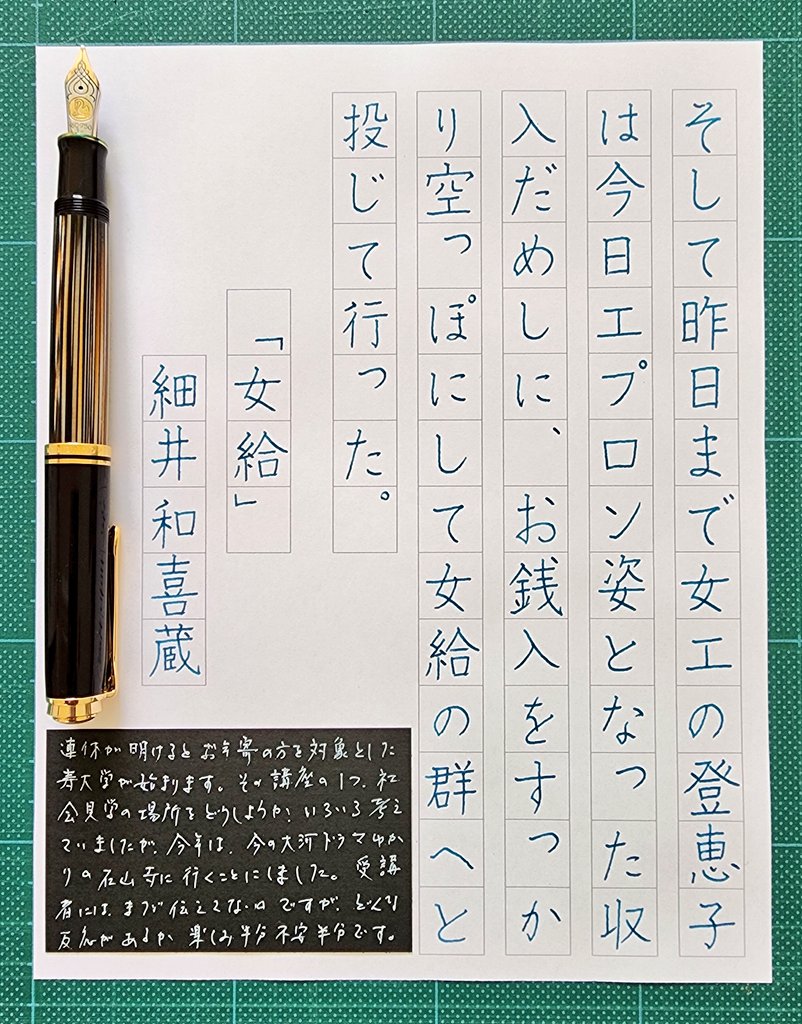 そして昨日まで女工の登恵子
は今日エプロン姿となった収
入だめしに、お銭入をすっか
り空っぽにして女給の群へと
投じて行った。
「女給」
細井和喜蔵
連休が明けるとお年寄の方を対象とした
寿大学が始まります。その講座の1つ、社
会見学の場所をどうしようか、いろいろ考え
ていましたが、今年は、今の大河ドラマゆか
りの石山寺に行くことにしました。受講
者には、まだ伝えてないのですが、どんな
反応があるか、楽しみ半分不安半分です。